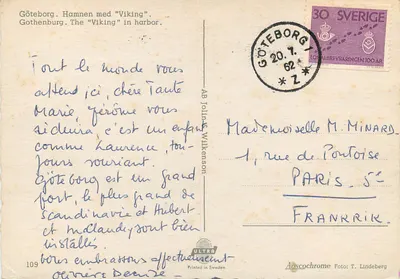 Göteborg. Hamnen med "Viking".
Gothenburg. The "Viking" in harbor.
Tout le monde vous
attend ici, chère Tante
Marie, Jérôme vous
aidera, c'est un enfant
comme Laurence, tou-
jours souriant.
Göteborg est un grand
port, le plus grand de
Scandinavie et Hubert
et Mollandy sont bien
installés.
Nous embrassons affectueusement
109
AB Jolin & Wilkenson
ULTRA
Printed in Sweden
GÖTEBORG 1
20.7.
62
* 2 *
30 SVERIGE
100 ÅR
Mademoiselle M. MINARD
1, rue de Pontoise
PARIS. 5e
FRANKRIK
Foto: T. Lindeberg